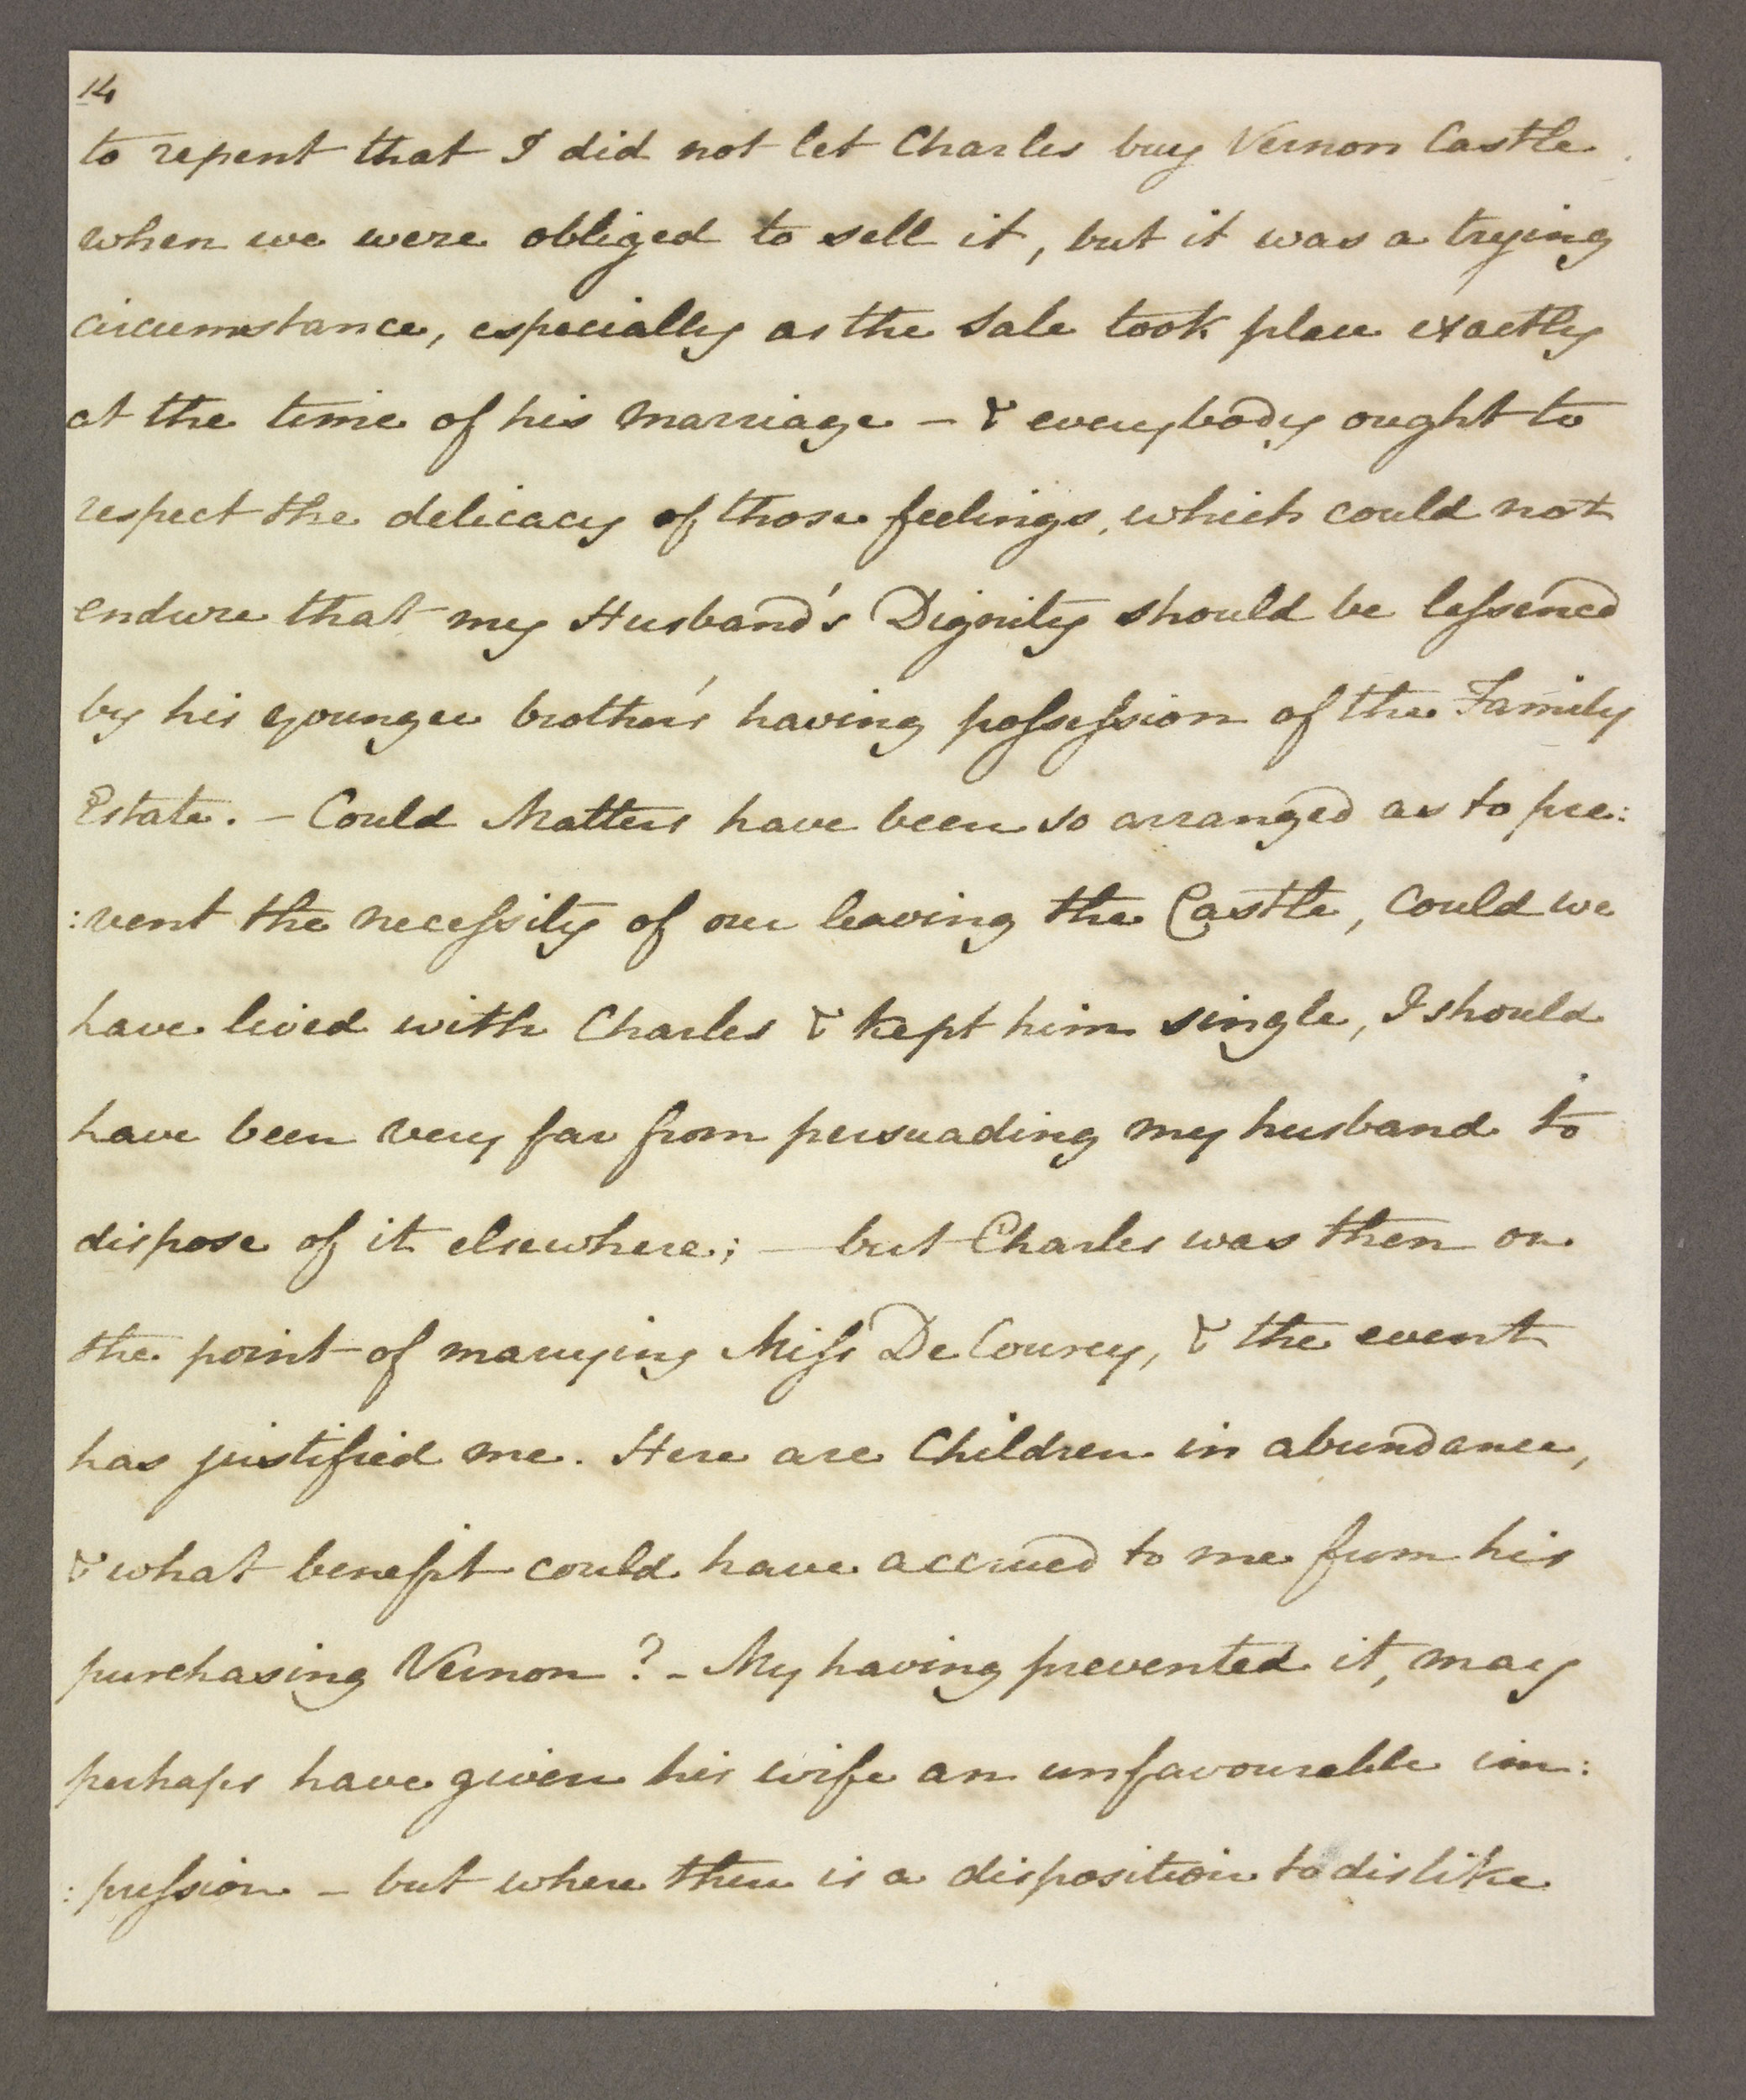 14
to repent that I did not let Charles buy Vernon Castle
when we were obliged to sell it, but it was a trying
circumstance, especially as the Sale took place exactly
at the time of his marriage - & everybody ought to
respect the delicacy of those feelings, which could not
endure that my Husband's Dignity should be leſsened
by his younger brother's having poſseſsion of the Family
Estate. - Could Matters have been so arranged as to pre:
:vent the neceſsity of our leaving the Castle, could we
have lived with Charles & kept him single, I should
have been very far from persuading my husband to
dispose of it elsewhere; - but Charles was then on
the point of marrying Miſs De Courcy, & the event
has justified me. Here are Children in abundance,
& what benefit could have accrued to me from his
purchasing Vernon? - My having prevented it, may
perhaps have given his wife an unfavourable im:
:preſsion - but where there is a disposition to dislike